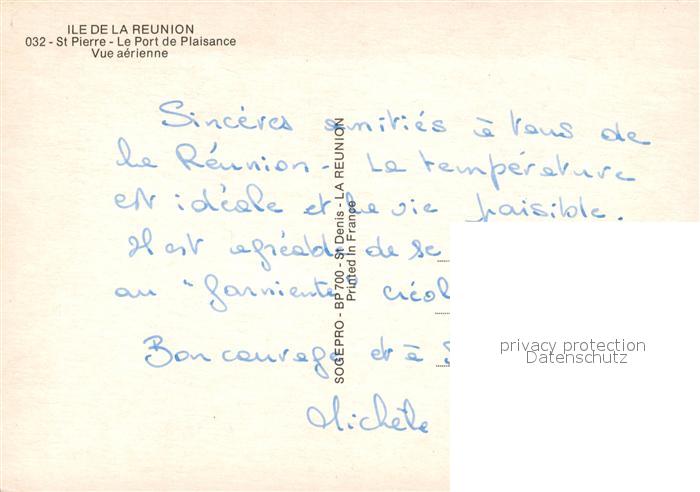 ILE DE LA REUNION
032 - St Pierre - Le Port de Plaisance
Vue aérienne
Sincères amitiés à tous de
la Réunion - La température
est idéale et la vie paisible.
Il est agréable de se
au "farniente" créol
Bon courage et à
Michèle
SOGEPRO - BP 700 - St Denis - LA REUNION
Printed in France
privacy protection
Datenschutz